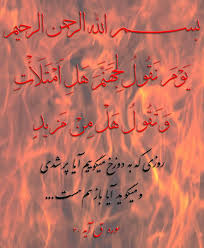 بسم الله الرحمن الرحیم
يَوْمَ نَقُولُ لِجَهَنَّمَ هَلِ امْتَلَأْتِ
وَتَقُولُ هَلْ مِنْ مَزِيدٍ
روزی که به دوزخ میگوییم آیا پر شدی
و میگوید آیا باز هم هست...
سوره ق آیه ۳۰